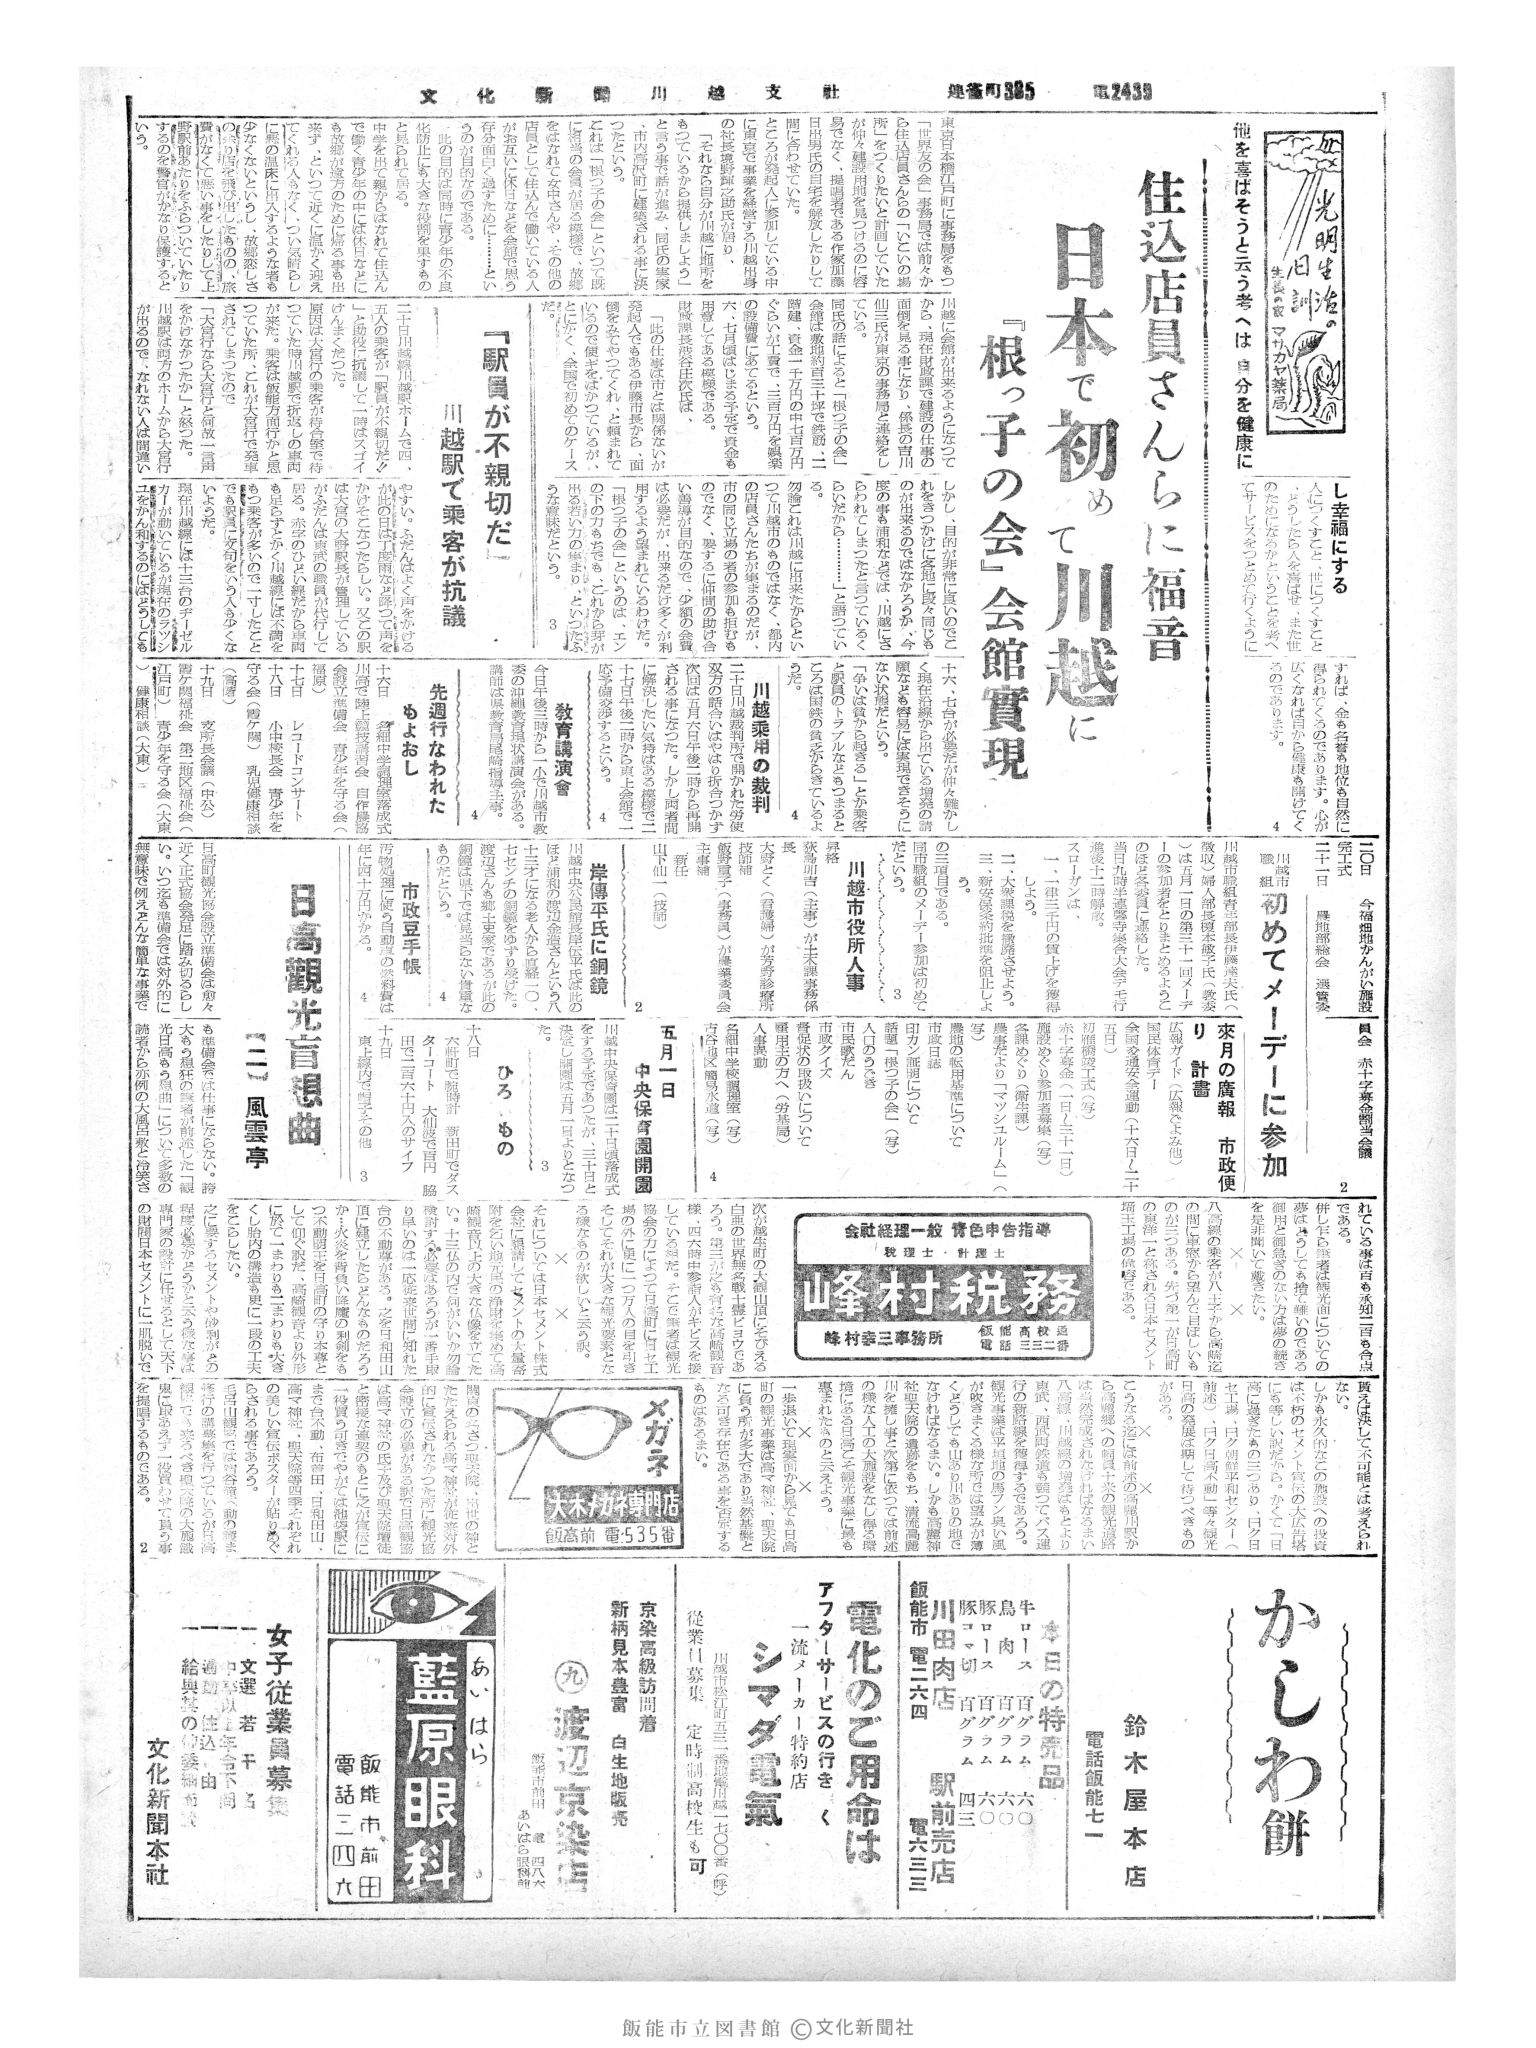 文化新聞川越支社　連雀町385　電2439
光明生活の日訓
生長の家　マサカヤ薬局
他を喜ばそうと云う考へは自分を健康に
し幸福にする
人につくすこと、世につくすこと
、どうしたら人を喜ばせ、また世
のためになるかということを考へ
てサービスをつとめて行くように
すれば、金も名誉も地位も自然に
得られてくるのであります。心が
広くなれば自から健康も開けてく
るのであります。　4
住込店員さんらに福音
日本で初めて川越に
『根っ子の会』会館實現
東京日本橋江戸町に事務局をもつ
「世界友の会」事務局では前々か
ら住込店員さんらの「いこいの場
所」をつくりたいと計画していた
が仲々建設用地を見つけるのに容
易でなく、提唱者である作家加藤
日出男氏の自宅を解放したりして
間に合わせていた。
ところが発起人に参加している中
に東京で事業を経営する川越出身
の社長境野輝之助氏が居り、
「それなら自分が川越に地所を
もつているから提供しましよう」
と言う事で話が進み、同氏の実家
、市内高沢町に建築される事に決
つたという。
これは「根つ子の会」といつて既
に相当の会員が居る模様で、故郷
をはなれて女中さんや、その他の
店員として住込んで働いている人
がお互いに休日などを会館で思う
存分面白く過すために……とい
うのが目的なのである。
此の目的は同時に青少年の不良
化防止にも大きな役割を果すもの
と見られて居る。
中学を出て親からはなれて住込ん
で働く青少年の中には休日などに
も故郷が遠方のために帰る事も出
来ず、といつて近くに温かく迎え
てくれる人もなく、つい気晴らし
に悪の温床に出入するような者も
少なくないというし、故郷恋しさ
の余り店を飛び出したものの、旅
費がなくて悪い事をしたりして上
野駅前あたりをふらついていたり
するのを警官がかなり保護すると
いう。
川越に会館が出来るようになつて
から、現在財政課で建設の仕事の
面倒を見る事になり、係長の吉川
仙三氏が東京の事務局と連絡をし
ている。
同氏の話によると「根つ子の会」
会館は敷地約百三十坪で鉄筋、二
階建、資金一千万円の中七百万円
ぐらいが工費で、三百万円を娯楽
の設備費にあてるという。
六、七月頃はじまる予定で資金も
用意してある模様である。
財政課長渋谷庄次氏は、
「此の仕事は市とは関係ないが
発起人でもある伊藤市長から、面
倒をみてやつてくれ、と頼まれて
いるので便ギをはかつているが、
とにかく、全国で初めてのケース
だ。
しかし、目的が非常に良いのでこ
れをきつかけに各地に段々同じも
のが出来るのではなかろうか、今
度の事も浦和などでは、川越にさ
らわれてしまつたと言つているく
らいだから………」と語つてい
る。
勿論これは川越に出来たからとい
つて川越市のものではなく、都内
の店員さんたちが集まるのだが、
市の同じ立場の者の参加も拒むも
のでなく、要するに仲間の助け合
い善導が目的なので、少額の会費
は必要だが、出来るだけ多くが利
用するよう望まれているわけだ。
「根つ子の会」というのは、エン
の下の力もちでも、これから芽が
出る若い力の集まり、といつたふ
うな意味だという。　3
「駅員が不親切だ」
川越駅で乗客が抗議
二十日川越線川越駅ホームで四、
五人の乗客が「駅員が不親切だ!!
」と助役に抗議して一時はスゴイ
けんまくだつた。
原因は大宮行の乗客が待合室で待
つていた時川越駅で折返しの車両
が来た。乗客は飯能方面行かと思
つていた所、これが大宮行で発車
されてしまつたので
「大宮行なら大宮行と何故一言声
をかけなかつたか」と怒つたス。
川越駅は両方のホームから大宮行
が出るので、なれない人は間違い
やすい。ふだんはよく声をかける
が此の日は丁度雨など降つて声を
かけそこなつたらしい。又この駅
は大宮の大野駅長が管理している
がふだんは東武の職員が代行して
居る。赤字のひどい線だから車両
も足らずとかく川越線には不満を
もつ乗客が多いので一寸したこと
でも駅員に文句をいう人も少くな
いようだ。
現在川越線には十三台のヂーゼル
カーが動いているが現在のラツシ
ユをかん和するのにはどうしても
十六、七台が必要だが仲々難かし
く現在沿線から出ている増発の請
願なども容易には実現できそうに
ない状態だという。
「争いは貧から起きる」とか乗客
と駅員のトラブルなどもつまると
ころは国鉄の貧乏からきているよ
うだ。　4
川越乗用の裁判
二十日川越裁判所で開かれた労使
双方の話合いはやはり折合つかず
次回は五月六日午後二時から再開
される事になつた。しかし両者間
に解決したい気持はある模様で二
十七日午後二時から東上会館で一
応予備交渉するという。　4
教育講演會
今日午後三時から一小で川越市教
委の沖縄教育現状講演会がある。
講師は県教育局尾崎指導主事。　4
先週行なわれた
もよおし
十六日　名細中学調理室落成式
川高で陸上競技講習会　自作農協
会設立準備会　青少年を守る会(
福原)
十七日　レコードコンサート
十八日　小中校長会　青少年を
守る会(霞ケ関)　乳児健康相談
(高階)
十九日　支所長会議(中公)
霞ケ関福祉会　第二地区福祉会(
江戸町)　青少年を守る会(大東
)　健康相談(大東)
二〇日　今福畑地かんがい施設
完工式
二十一日　農地部総会　選管委
員会　赤十字募金割当会議　2
川越市職組　初めてメーデーに参加
川越市職組青年部長伊藤達夫氏(
徴収)婦人部長榎本敏子氏(教委
)は五月一日の第三十一回メーデ
ーの参加者をとりまとめるように
のほど各委員に連絡した。
当日九時半連馨寺集合大会デモ行
進後十二時解散。
スローガンは、
一、一律三千円の賃上げを獲得
しよう。
二、大衆課税を撤廃させよう。
三、新安保条約批准を阻止しよ
う。
の三項目である。
同市職組のメーデー参加は初めて
だという。　3
川越市役所人事
昇格
荻島明吉(主事)が土木課事務係
長
大野とく(看護婦)が芳野診療所
技師補
飯野重子(事務員)が農業委員会
主事補
新任
山下仙一(技師)　2
岸傳平氏に銅鏡
川越中央公民館長岸伝平氏は此の
ほど浦和の渡辺金造さんという八
十三才になる老人から直経一〇、
七センチの銅鏡をゆずり受けた。
渡辺さんも郷土史家であるが此の
銅鏡は県下では見当らない貴重な
ものだという。　4
市政豆手帳
汚物処理に使う自動車の燃料費は
年に四十万円かかる。　4
來月の廣報　市政便り計畫
広報ガイド(広報ごよみ他)
国民体育デー
全国交通安全運動(十六日―二十
初雁橋竣工式(写)
赤十字募金(一日―三十一日)
施設めぐり参加者募集(写)
各課めぐり(衛生課)
農事だより「マツシユルーム」(
写)
農地の転用基準について
市政日誌
印カン証明について
話題「根つ子の会」(写)
人口のうごき
市民歌だん
市政クイズ
督促状の取扱いについて
雇用主の方へ(労基局)
人事異動
名細中学校調理室(写)
古谷地区簡易水道(写)　4
五月一日
中央保育園開園
川越中央保育園は二十日頃落成式
をする予定であつたが、三十日と
決定し開園は五月一日よりとなつ
た。　3
ひろいもの
十八日
六軒町で腕時計　新田町でダス
ターコート　大仙波で百円　脇
田で二百六十円入のサイフ
十九日
東上線内で帽子その他　3
日高觀光盲想曲
【二】　風雲亭
日高町観光協会設立準備会は愈々
近く正式協会発足に踏み切るらし
い。いつ迄も準備会では対外的に
無意味で例えどんな簡単な事業で
も準備会では仕事にならない。誇
大もう想狂の筆者が前述した「観
光日高もう想曲」について多数の
読者から亦例の大風呂敷と冷笑さ
れている事は百も承知二百も合点
である。
併し乍ら筆者は観光面についての
夢はどうしても捨て難いのである
御用と御急ぎのない方は夢の続き
を是非聞いて戴きたい。
×　×
八高線の乗客が八王子から高崎迄
の間に車窓から望んで目ほしいも
のが三つある。先づ第一が日高町
の東洋一と称される日本セメント
埼玉工場の偉容である。
次が越生町の大観山頂にそびえる
白亜の世界無名戦士霊ビヨウであ
ろう。第三がこゝも有名な高崎観音
様、四六時中参詣人がキビスを接
している相だ。そこで筆者は観光
協会の力によつて日高町に日セ工
場の外に更に一つ万人の目を引き
そしてそれが大きな観光要素とな
る様なものが欲しいと云う訳。
×　×
それについては日本セメント株式
会社に懇請してセメントの大量寄
附を乞い地元馬の浄財を集めて高
崎観音以上の大きな仏像を立てた
い。十三仏の内で何がいいか勿論
検討する必要はあろうが一番手取
り早いのは一応従来世間に知れた
台の不動尊がある。之を日和田山
頂に建立したらどんなものだろう
か…火炎を背負い降魔の利剣をも
つ不動明王を日高町の守り本尊と
して仰ぐ訳だ、高崎観音より外形
に於て一まわりも二まわりも大き
くし胎内の構造も更に一段の工夫
をこらしたい。
之に要するセメントや砂利がどの
程度必要かどうかと云う様な事は
専門家の設計に任せるとして天下
の財閥日本セメントに一肌脱いで
貰えば決して不可能とは考えられ
ない。
しかも永久的なこの施設への投資
は不朽のセメント宣伝の大広告塔
にも等しい訳だから。かくて「日
高に過ぎたもの三つあり、曰ク日
セ工場、曰ク朝鮮平和センター(
前述)、曰ク日高不動」等々観光
日高の発展は期して待つべきもの
がある。
×　×
こうなる迄には前述の高麗川駅か
ら高麗郷への幅員十米の観光道路
は当然完成されなければなるまい
八高線、川越線の増発はもとより
東武、西武両鉄道も競つてバス運
行の新路線を獲得するであろう。
観光事業は平垣地の馬フン臭い風
が吹きまくる様な所では望みが薄
くどうしても山あり川ありの地で
なければなるまい。しかも高麗神
社聖天院の遺跡をもち、清流高麗
川を擁し事と次第に依つては前述
の様な人工の大施設をなし得る環
境にある日高こそ観光事業に最も
恵まれたものと云えよう。
×　×
一歩退いて現実面から見ても日高
町の観光事業は高マ神社、聖天院
に負う所が多大であり当然基盤と
なる可き存在である事を否定する
ものはあるまい。
会社経理一般　青色申告指導
税理士・計理士
峰村税務
峰村幸三事務所　飯能高校通　電話三三二番
メガネ
大木メガネ専門店
飯高前　電535番
かしわ餅
鈴木屋本店
電話飯能七一
本日の特売品
牛ロース　百グラム　六〇
鳥肉　百グラム　六〇
豚ロース　百グラム　六〇
豚コマ切　百グラム　四三
川田肉店　駅前売店
飯能市　電二六四　電六三三
電化のご用命は
アフターサービスの行き　く
一流メーカー特約店
シマダ電氣
川越市松江町五三一番地電川越一七〇〇番(呼)
従業員募集　定時制高校生も可
京染高級訪問着
新柄見本豊富　白生地販売
九　渡辺京染店
飯能市前田　電　四八六
あいはら眼科前
あいはら
藍原眼科
飯能市前田
電話二四六
女子従業員募集
一、文選　若干名
一、中卒以上年令不問
一、通勤住込　由
文化新聞本社
飯能市立図書館 ©文化新聞社